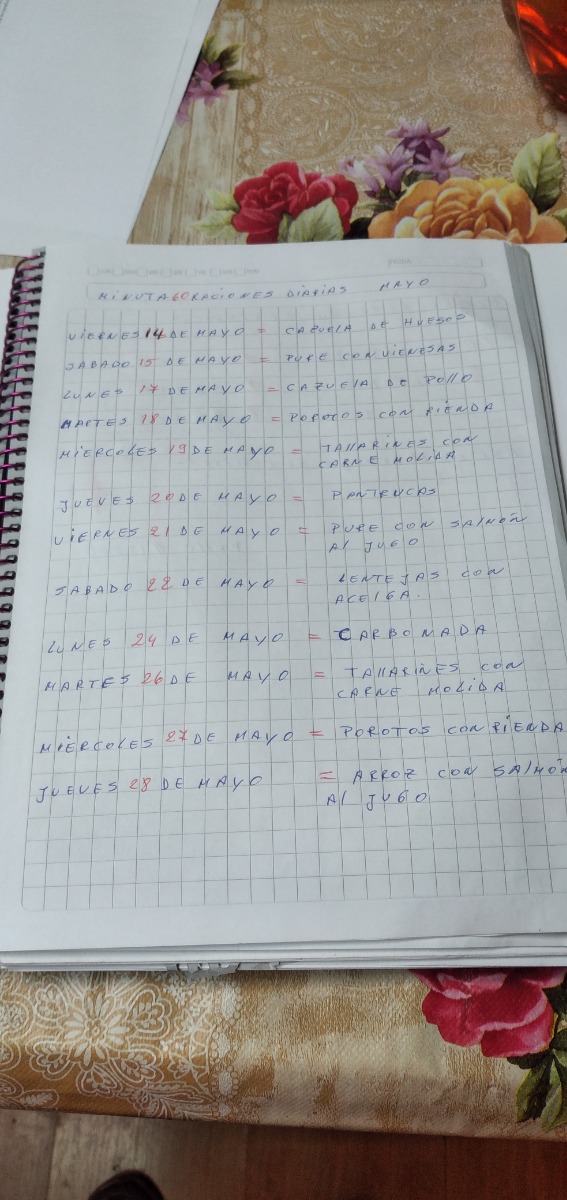 FECHA
MINUTA 60 RACIONES DIARIAS MAYO
VIERNES 14 DE MAYO = CAZUELA DE HUESOS
SABADO 15 DE MAYO = PURE CON VIENESAS
LUNES 17 DE MAYO = CAZUELA DE POLLO
MARTES 18 DE MAYO = POROTOS CON RIENDA
MIERCOLES 19 DE MAYO = TALLARINES CON
CARNE MOLIDA
JUEVES 20 DE MAYO = PANTRUCAS
VIERNES 21 DE MAYO = PURE CON SALMÓN
AL JUGO
SABADO 22 DE MAYO = LENTEJAS CON
ACELGA.
LUNES 24 DE MAYO = CARBONADA
MARTES 26 DE MAYO = TALLARINES CON
CARNE MOLIDA
MIERCOLES 27 DE MAYO = POROTOS CON RIENDA
JUEVES 28 DE MAYO = ARROZ CON SALMÓN
AL JUGO